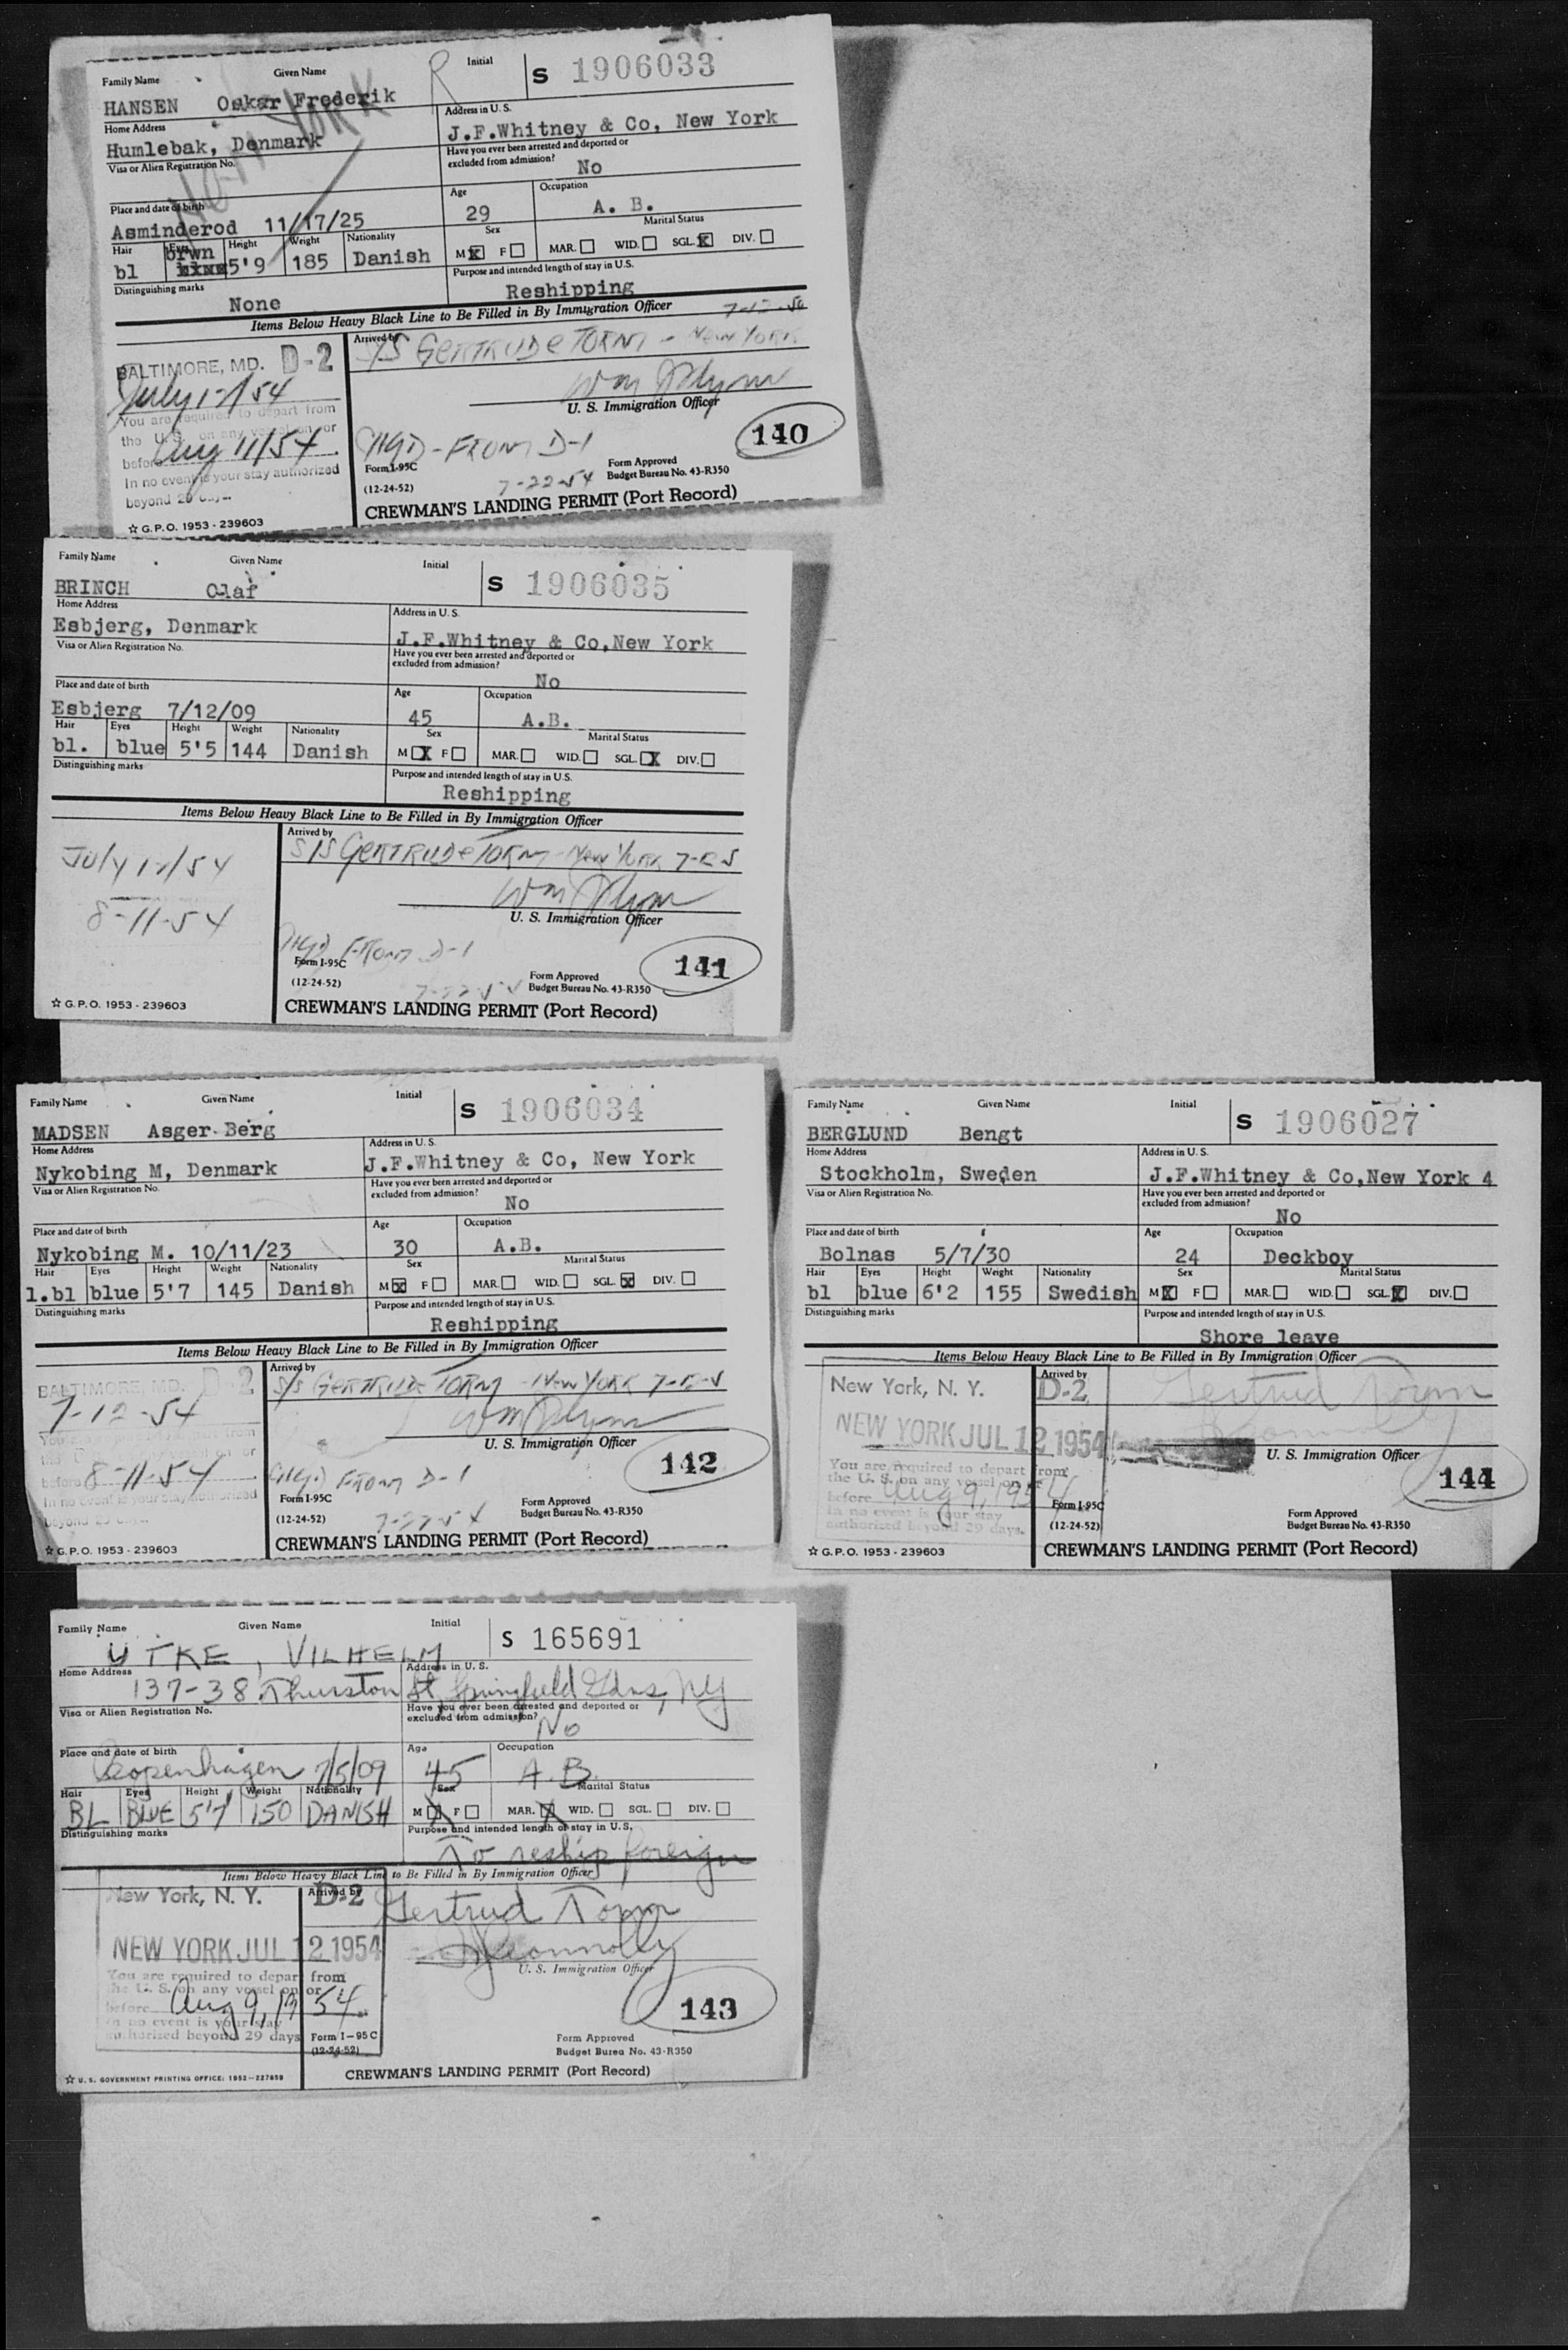 Family Name Given Name Initial
S 1906033
HANSEN Oskar Frederik R
Home Address Address in U. S.
Humlebak, Denmark J.F.Whitney & Co, New York
Visa or Alien Registration No. Have you ever been arrested and deported or
excluded from admission? No
Place and date of birth Age Occupation
Asminderod 11/17/25 29 A. B.
Hair Eyes Height Weight Nationality Sex Marital Status
bl brwn 5'9 185 Danish M X F MAR. WID. SGL. X DIV.
Distinguishing marks Purpose and intended length of stay in U.S.
None Reshipping
Items Below Heavy Black Line to Be Filled in By Immigration Officer
Arrived by
S/S GERTRUDE TORM - NEW YORK
BALTIMORE, MD. D-2
You are required to depart from
the U. S. on any vessel on or
before Aug 11/54
In no event is your stay authorized
U. S. Immigration Officer
140
FROM D-1
7-22-54
Form I-95C Form Approved
(12-24-52) Budget Bureau No. 43-R350
CREWMAN'S LANDING PERMIT (Port Record)
☆ G.P.O. 1953 - 239603
Family Name Given Name Initial
S 1906035
BRINCH Olaf
Home Address Address in U. S.
Esbjerg, Denmark J.F.Whitney & Co,New York
Visa or Alien Registration No. Have you ever been arrested and deported or
excluded from admission? No
Place and date of birth Age Occupation
Esbjerg 7/12/09 45 A.B.
Hair Eyes Height Weight Nationality Sex Marital Status
bl. blue 5'5 144 Danish M X F MAR. WID. SGL. X DIV.
Distinguishing marks Purpose and intended length of stay in U.S.
Reshipping
Items Below Heavy Black Line to Be Filled in By Immigration Officer
Arrived by
S/S GERTRUDE TORM - New York
8-11-54
U. S. Immigration Officer
FROM D-1
141
Form I-95C Form Approved
(12-24-52) Budget Bureau No. 43-R350
CREWMAN'S LANDING PERMIT (Port Record)
☆ G.P.O. 1953 - 239603
Family Name Given Name Initial
S 1906034
MADSEN Asger Berg
Home Address Address in U. S.
Nykobing M, Denmark J.F.Whitney & Co, New York
Visa or Alien Registration No. Have you ever been arrested and deported or
excluded from admission? No
Place and date of birth Age Occupation
Nykobing M. 10/11/23 30 A.B.
Hair Eyes Height Weight Nationality Sex Marital Status
l.bl blue 5'7 145 Danish M X F MAR. WID. SGL. X DIV.
Distinguishing marks Purpose and intended length of stay in U.S.
Reshipping
Items Below Heavy Black Line to Be Filled in By Immigration Officer
Arrived by
S/S GERTRUDE TORM - New YORK
BALTIMORE, MD. D-2
7-12-54
before 8-11-54
U. S. Immigration Officer
FROM D-1
142
Form I-95C Form Approved
(12-24-52) Budget Bureau No. 43-R350
CREWMAN'S LANDING PERMIT (Port Record)
☆ G.P.O. 1953 - 239603
Family Name Given Name Initial
S 1906027
BERGLUND Bengt
Home Address Address in U. S.
Stockholm, Sweden J.F.Whitney & Co,New York 4
Visa or Alien Registration No. Have you ever been arrested and deported or
excluded from admission? No
Place and date of birth Age Occupation
Bolnas 5/7/30 24 Deckboy
Hair Eyes Height Weight Nationality Sex Marital Status
bl blue 6'2 155 Swedish M X F MAR. WID. SGL. X DIV.
Distinguishing marks Purpose and intended length of stay in U.S.
Shore leave
Items Below Heavy Black Line to Be Filled in By Immigration Officer
Arrived by
New York, N. Y. D-2 Gertrud Torm
NEW YORK JUL 12 1954
You are required to depart from
the U. S. on any vessel on or
before Aug 9, 1954
In no event is your stay
authorized beyond 29 days.
U. S. Immigration Officer
144
Form I-95C Form Approved
(12-24-52) Budget Bureau No. 43-R350
CREWMAN'S LANDING PERMIT (Port Record)
☆ G.P.O. 1953 - 239603
Family Name Given Name Initial
S 165691
UTKE, VILHELM
Home Address Address in U. S.
137-38 Thurston St, Springfield Gdns, NY
Visa or Alien Registration No. Have you ever been arrested and deported or
excluded from admission? No
Place and date of birth Age Occupation
Copenhagen 7/5/09 45 A.B.
Hair Eyes Height Weight Nationality Sex Marital Status
BL BLUE 5'7" 150 DANISH M X F MAR. X WID. SGL. DIV.
Distinguishing marks Purpose and intended length of stay in U.S.
To reship foreign
Items Below Heavy Black Line to Be Filled in By Immigration Officer
Arrived by
New York, N. Y. D-2 Gertrud Torm
NEW YORK JUL 12 1954
Connolly
You are required to depart from
the U. S. on any vessel on or
before Aug 9, 1954
In no event is your stay
authorized beyond 29 days
U. S. Immigration Officer
143
Form I-95C Form Approved
(12-24-52) Budget Burea No. 43-R350
CREWMAN'S LANDING PERMIT (Port Record)
☆ U. S. GOVERNMENT PRINTING OFFICE: 1952-227859